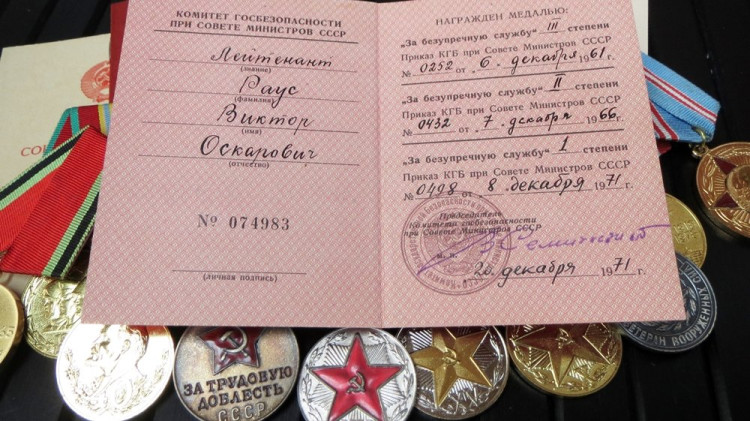 КОМИТЕТ ГОСБЕЗОПАСНОСТИ
ПРИ СОВЕТЕ МИНИСТРОВ СССР
Лейтенант
(звание)
Раус
(фамилия)
Виктор
(имя)
Оскарович
(отчество)
№ 074983
(личная подпись)
НАГРАЖДЕН МЕДАЛЬЮ:
„За безупречную службу" III степени
Приказ КГБ при Совете Министров СССР
№ 0252 от „6. декабря 1961 г.
„За безупречную службу" II степени
Приказ КГБ при Совете Министров СССР
№ 0432 от „7. декабря 1966 г.
„За безупречную службу" I степени
Приказ КГБ при Совете Министров СССР
№ 0498 „ 8. декабря 1971 г.
Председатель
Комитета госбезопасности
при Совете Министров СССР
м. п.
20 декабря 1971 г.
ЗА ТРУДОВУЮ
ДОБЛЕСТЬ
СССР
ВЕТЕРАН ВООРУЖЕННЫХ